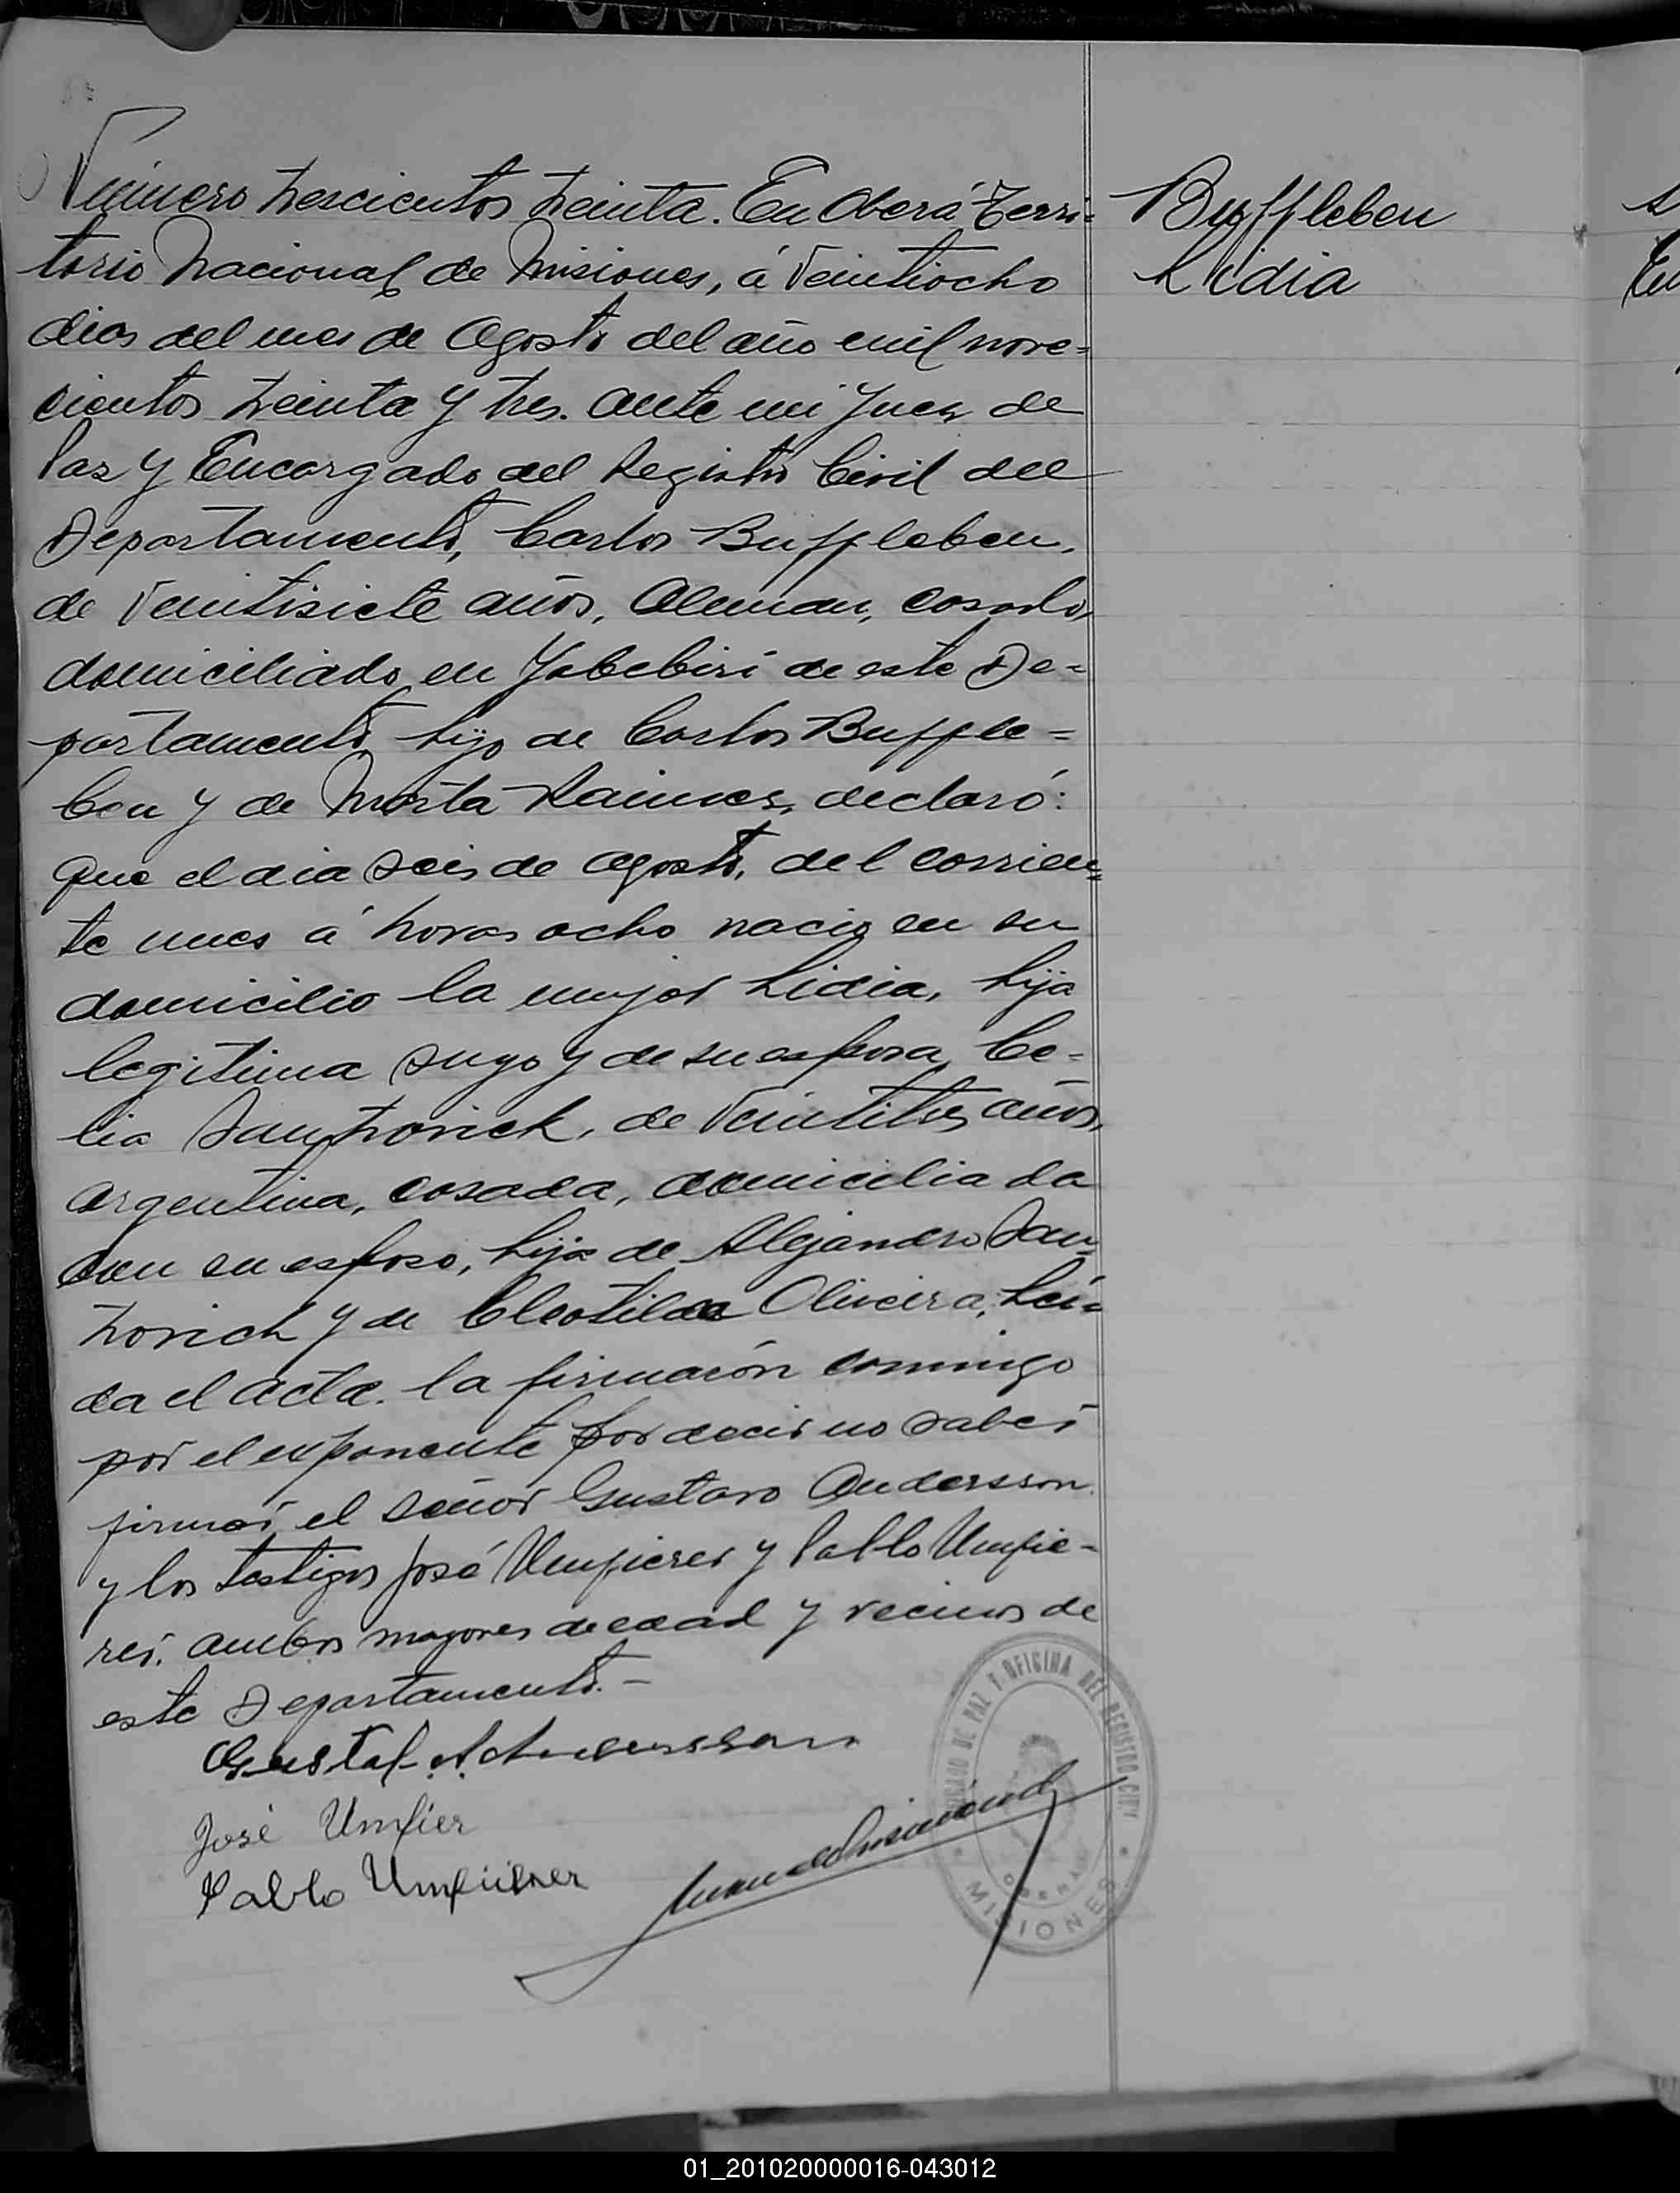 Número trescientos treinta. En Oberá Terri=
torio Nacional de Misiones, á veintiocho
dias del mes de Agosto del año mil nove=
cientos treinta y tres. ante mi Juez de
Paz y Encargado del Registro Civil del
Departamento, Carlos Buffleben,
de veintisiete años, Aleman, casado,
domiciliado en Yabebirí de este De=
partamento, hijo de Carlos Buffle=
ben y de Marta Raimer, declaró:
que el dia seis de agosto, del corrien=
te mes á horas ocho nació en su
domicilio la mujer Lidia, hija
legitima suya y de su esposa Ce=
lia Santrovich, de veintitres años,
argentina, casada, domiciliada
con su esposo, hija de Alejandro San=
trovich y de Cleotilda Oliveira, Leí=
da el acta. la firmarón conmigo
por el exponente por decir no saber
firmar, el señor Gustavo Andersson
y los testigos José Umfierer y Pablo Umfie=
rer. ambos mayores de edad y vecinos de
este Departamento.—
Gustaf A. Andersson
José Umfier
Pablo
JUZGADO DE PAZ Y OFICINA DEL REGISTRO CIVIL
OBERÁ
MISIONES
Buffleben
Lidia
01_201020000016-043012